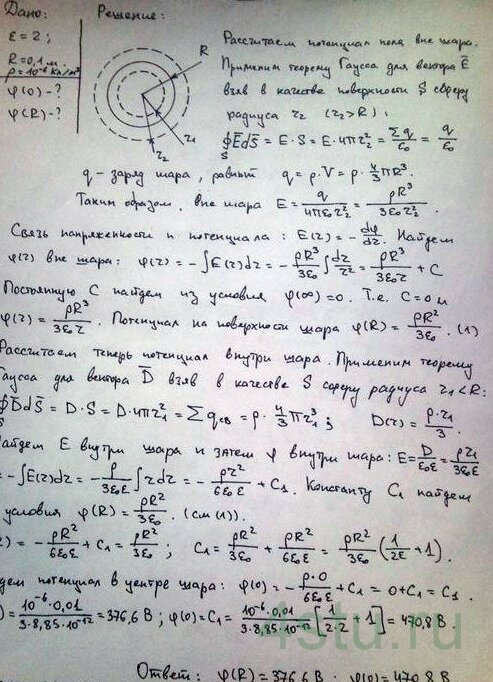 Дано:
Решение:
ε = 2;
R = 0,1 м.
ρ = 10⁻⁶ Кл/м³
φ(0) - ?
φ(R) - ?
R
r₁
r₂
Рассчитаем потенциал поля вне шара.
Применим теорему Гаусса для вектора E̅
взяв в качестве поверхности S сферу
радиуса r₂ (r₂ > R):
∮E̅dS̅ = E·S = E·4πr₂² = Σq/ε₀ = q/ε₀
S
q - заряд шара, равный q = ρ·V = ρ·4/3πR³.
Таким образом, вне шара E = q/4πε₀r₂² = ρR³/3ε₀r₂².
Связь напряженности и потенциала: E(r) = -dφ/dr. Найдем
φ(r) вне шара: φ(r) = -∫E(r)dr = -ρR³/3ε₀ ∫dr/r² = ρR³/3ε₀r + C
Постоянную C найдем из условия φ(∞)=0. Т.е. C=0 и
φ(r) = ρR³/3ε₀r. Потенциал на поверхности шара φ(R) = ρR²/3ε₀. (1)
Рассчитаем теперь потенциал внутри шара. Применим теорему
Гаусса для вектора D̅ взяв в качестве S сферу радиуса r₁<R:
∮D̅dS̅ = D·S = D·4πr₁² = Σqсв = ρ·4/3πr₁³; D(r) = ρ·r₁/3
S
Найдем E внутри шара и затем φ внутри шара: E = D/ε₀ε = ρr₁/3ε₀ε
= -∫E(r)dr = -ρ/3ε₀ε ∫rdr = -ρr²/6ε₀ε + C₁. Константу C₁ найдем
условия φ(R) = ρR²/3ε₀. (см(1)).
) = -ρR²/6ε₀ε + C₁ = ρR²/3ε₀; C₁ = ρR²/3ε₀ + ρR²/6ε₀ε = ρR²/3ε₀(1/2ε + 1).
дем потенциал в центре шара: φ(0) = -ρ·0/6ε₀ε + C₁ = 0 + C₁ = C₁.
) = 10⁻⁶·0,01/3·8,85·10⁻¹² = 376,6 В; φ(0) = C₁ = 10⁻⁶·0,01/3·8,85·10⁻¹²[1/2·2 + 1] = 470,8 В.
4stu.ru
Ответ: φ(R) = 376,6 В. φ(0) = 470,8 В